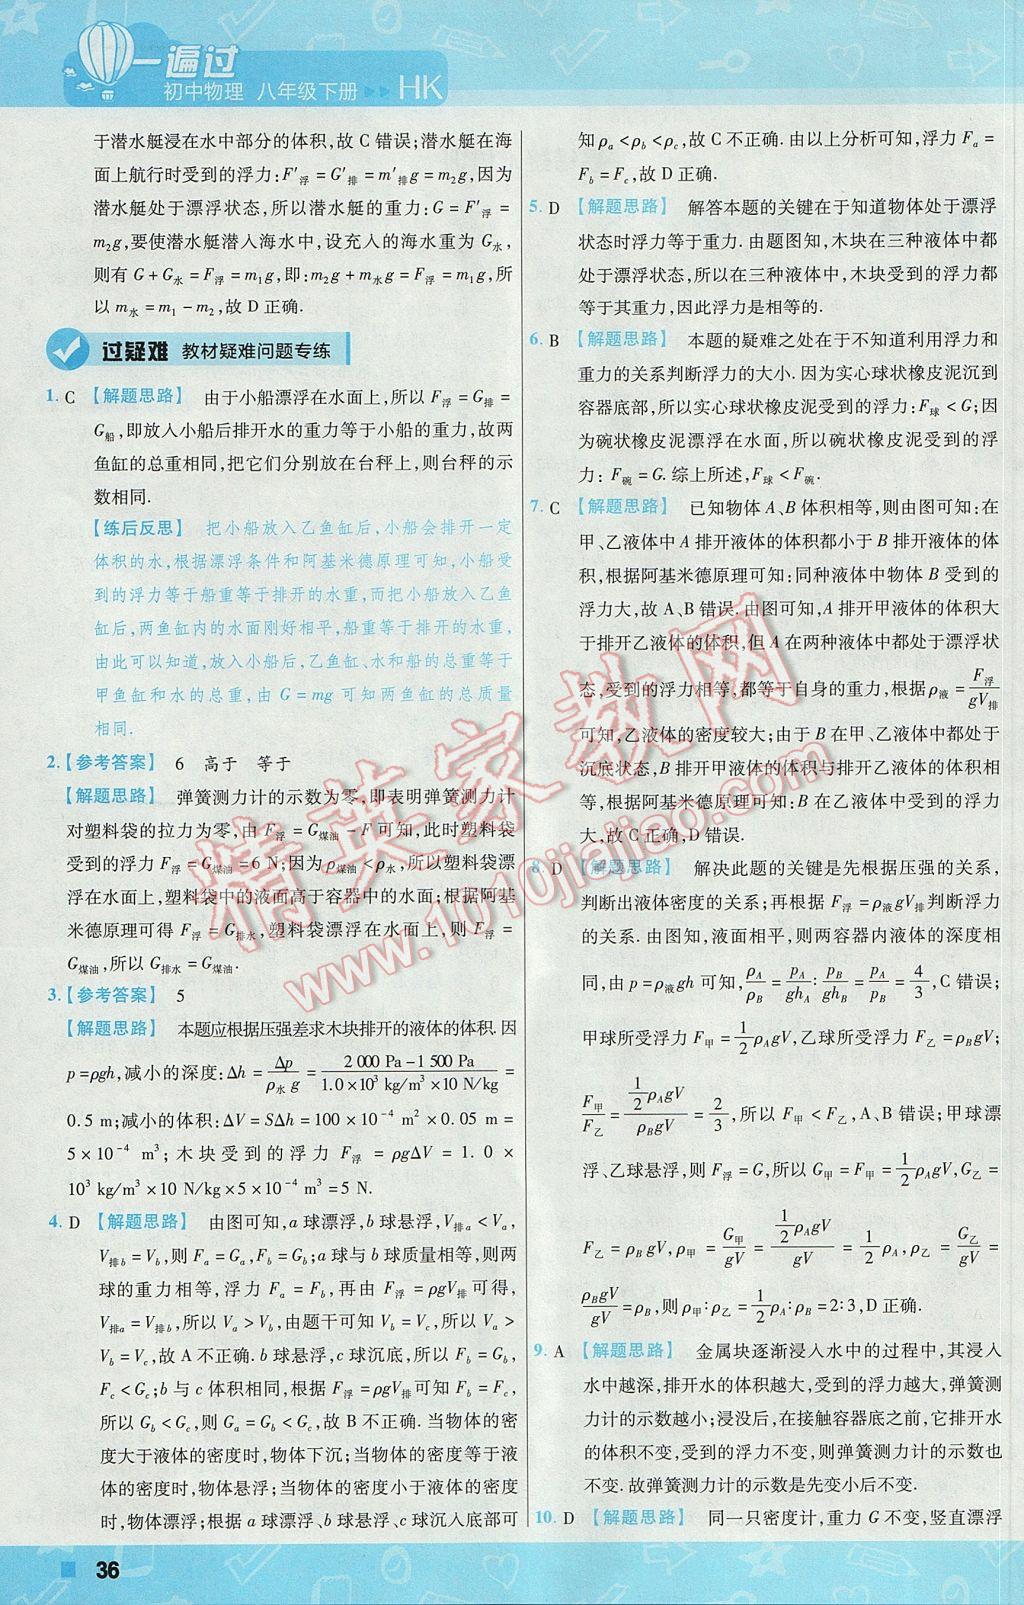 一遍过
初中物理 八年级下册 ▶▶ HK
于潜水艇浸在水中部分的体积,故 C 错误;潜水艇在海
面上航行时受到的浮力:F′浮 = G′排 = m′排g = m₂g,因为
潜水艇处于漂浮状态,所以潜水艇的重力:G = F′浮 =
m₂g,要使潜水艇潜入海水中,设充入的海水重为 G水,
则有 G + G水 = F浮 = m₁g,即:m₂g + m水g = F浮 = m₁g,所
以 m水 = m₁ - m₂,故 D 正确.
过疑难 教材疑难问题专练
1. C 【解题思路】 由于小船漂浮在水面上,所以 F浮 = G排 =
G船,即放入小船后排开水的重力等于小船的重力,故两
鱼缸的总重相同,把它们分别放在台秤上,则台秤的示
数相同.
【练后反思】 把小船放入乙鱼缸后,小船会排开一定
体积的水,根据漂浮条件和阿基米德原理可知,小船受
到的浮力等于船重等于排开的水重,而把小船放入乙鱼
缸后,两鱼缸内的水面刚好相平,船重等于排开的水重,
由此可以知道,放入小船后,乙鱼缸、水和船的总重等于
甲鱼缸和水的总重,由 G = mg 可知两鱼缸的总质量
相同.
2. 【参考答案】 6 高于 等于
【解题思路】 弹簧测力计的示数为零,即表明弹簧测力计
对塑料袋的拉力为零,由 F浮 = G煤油 - F 可知,此时塑料袋
受到的浮力 F浮 = G煤油 = 6 N;因为ρ煤油 < ρ水,所以塑料袋漂
浮在水面上,塑料袋中的液面高于容器中的水面;根据阿基
米德原理可得 F浮 = G排水,塑料袋漂浮在水面上,则 F浮 =
G煤油,所以 G排水 = G煤油.
3. 【参考答案】 5
【解题思路】 本题应根据压强差求木块排开的液体的体积.因
p = ρgh,减小的深度:Δh = Δp/(ρ水 g) = (2 000 Pa - 1 500 Pa)/(1.0×10³ kg/m³×10 N/kg) =
0.5 m;减小的体积:ΔV = SΔh = 100×10⁻⁴ m²×0.05 m =
5×10⁻⁴ m³;木块受到的浮力 F浮 = ρgΔV = 1.0 ×
10³ kg/m³×10 N/kg×5×10⁻⁴ m³ = 5 N.
4. D 【解题思路】 由图可知,a 球漂浮,b 球悬浮,V排a < Va,
V排b = Vb,则 Fa = Ga,Fb = Gb;a 球与 b 球质量相等,则两
球的重力相等,浮力 Fa = Fb,再由 F浮 = ρgV排可得,
V排a = V排b,所以 Va > Vb,由题干可知 Vb = Vc,所以 Va >
Vb = Vc,故 A 不正确.b 球悬浮,c 球沉底,所以 Fb = Gb,
Fc < Gc;b 与 c 体积相同,根据 F浮 = ρgV排可知 Fb = Fc,
所以 Gb < Gc,则 Ga = Gb < Gc,故 B 不正确.当物体的密
度大于液体的密度时,物体下沉;当物体的密度等于液
体的密度时,物体悬浮;当物体的密度小于液体的密度
时,物体漂浮;根据 a 球漂浮、b 球悬浮、c 球沉入底部可
知ρa < ρb < ρc,故 C 不正确. 由以上分析可知,浮力 Fa =
Fb = Fc,故 D 正确.
5. D 【解题思路】 解答本题的关键在于知道物体处于漂浮
状态时浮力等于重力.由题图知,木块在三种液体中都
处于漂浮状态,所以在三种液体中,木块受到的浮力都
等于其重力,因此浮力是相等的.
6. B 【解题思路】 本题的疑难之处在于不知道利用浮力和
重力的关系判断浮力的大小.因为实心球状橡皮泥沉到
容器底部,所以实心球状橡皮泥受到的浮力:F球 < G;因
为碗状橡皮泥漂浮在水面,所以碗状橡皮泥受到的浮
力:F碗 = G.综上所述,F球 < F碗.
7. C 【解题思路】 已知物体 A、B 体积相等,则由图可知,在
甲、乙液体中 A 排开液体的体积都小于 B 排开液体的体
积,根据阿基米德原理可知:同种液体中物体 B 受到的
浮力大,故 A、B 错误.由图可知,A 排开甲液体的体积大
于排开乙液体的体积,但 A 在两种液体中都处于漂浮状
态,受到的浮力相等,都等于自身的重力,根据ρ液 = F浮/(gV排)
可知,乙液体的密度较大;由于 B 在甲、乙液体中都处于
沉底状态,B 排开甲液体的体积与排开乙液体的体积相
等,根据阿基米德原理可知:B 在乙液体中所受到的浮力
大,故 C 正确,D 错误.
8. D 【解题思路】 解决此题的关键是先根据压强的关系,
判断出液体密度的关系;再根据 F浮 = ρ液gV排判断浮力
的关系.由图知,液面相平,则两容器内液体的深度相
同,由 p = ρ液gh 可知, ρA/ρB = pA/(ghA) : pB/(ghB) = pA/pB = 4/3,C 错误;
甲球所受浮力 F甲 = 1/2 ρAgV,乙球所受浮力 F乙 = ρBgV,
F甲/F乙 = (1/2 ρAgV)/(ρBgV) = 2/3,所以 F甲 < F乙,A、B 错误;甲球漂
浮、乙球悬浮,则 F浮 = G,所以 G甲 = F甲 = 1/2 ρAgV,G乙 =
F乙 = ρBgV,ρ甲 = G甲/(gV) = (1/2 ρAgV)/(gV) = 1/2 ρA,ρ乙 = G乙/(gV) =
ρBgV/(gV) = ρB,则 ρ甲:ρ乙 = 1/2 ρA:ρB = 2:3,D 正确.
9. A 【解题思路】 金属块逐渐浸入水中的过程中,其浸入
水中越深,排开水的体积越大,受到的浮力越大,弹簧测
力计的示数越小;浸没后,在接触容器底之前,它排开水
的体积不变,受到的浮力不变,则弹簧测力计的示数也
不变.故弹簧测力计的示数是先变小后不变.
10. D 【解题思路】 同一只密度计,重力 G 不变,竖直漂浮
36
精英家教网
www.1010jiajiao.com